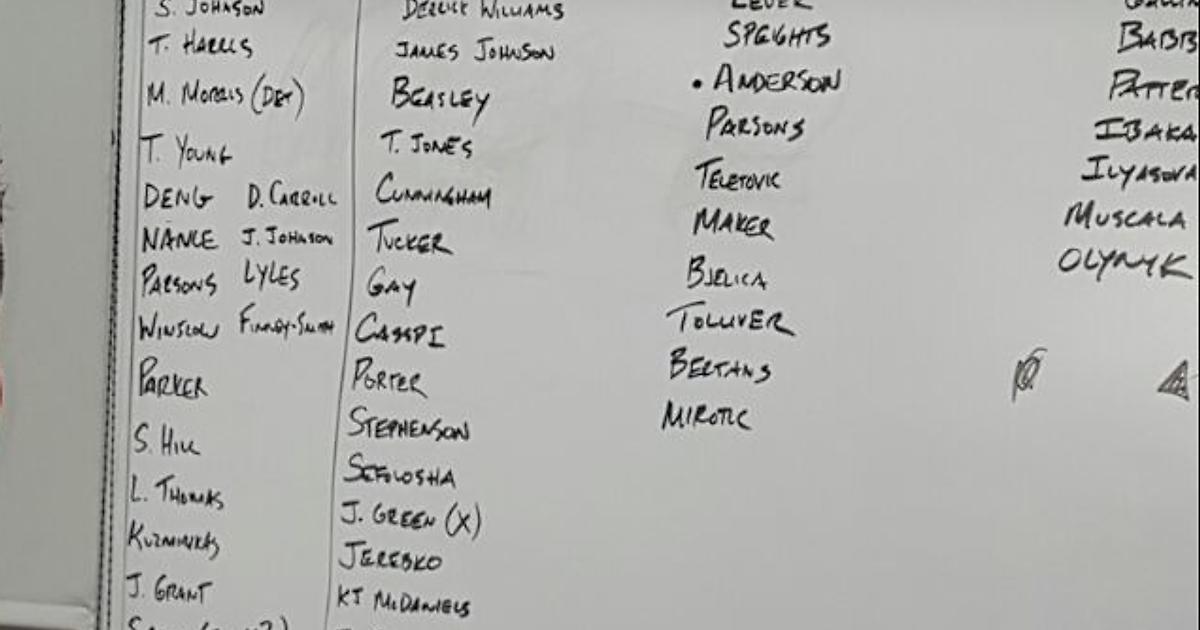 S. JOHNSON
T. HARRIS
M. MORRIS (DET)
T. YOUNG
DENG D. CARROLL
NANCE J. JOHNSON
PARSONS LYLES
WINSLOW FINNEY-SMITH
PARKER
S. HILL
L. THOMAS
KUZMINKAS
J. GRANT
DERRICK WILLIAMS
JAMES JOHNSON
BEASLEY
T. JONES
CUNNINGHAM
TUCKER
GAY
CASSPI
PORTER
STEPHENSON
SEFOLOSHA
J. GREEN (X)
JEREBKO
KJ McDANIELS
LEUER
SPEIGHTS
• ANDERSON
PARSONS
TELETOVIC
MAKER
BJELICA
TOLLIVER
BERTANS
MIROTIC
BABB
PATTER
IBAKA
ILYASOVA
MUSCALA
OLYNYK